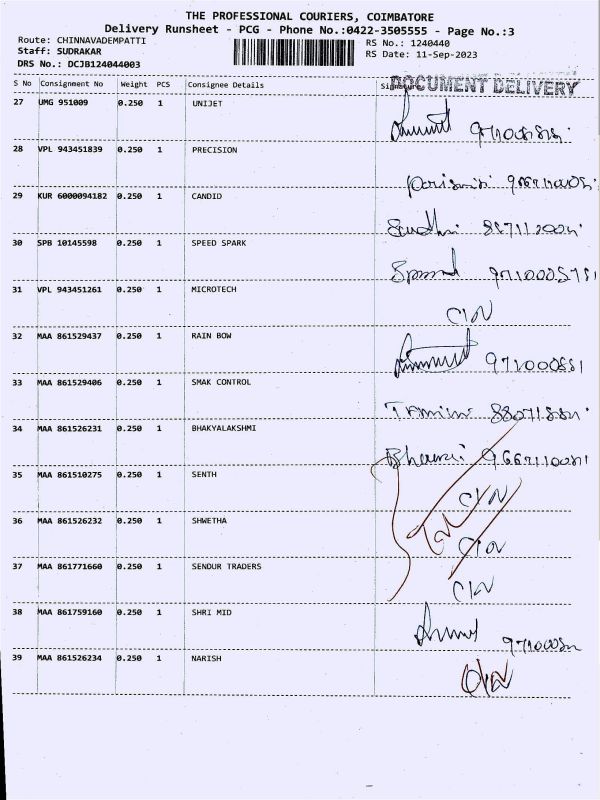 THE PROFESSIONAL COURIERS, COIMBATORE
Delivery Runsheet - PCG - Phone No.:0422-3505555 - Page No.:3
Route: CHINNAVADEMPATTI
Staff: SUDRAKAR
DRS No.: DCJB124044003
RS No.: 1240440
RS Date: 11-Sep-2023
S No Consignment No Weight PCS Consignee Details
DOCUMENT DELIVERY
27 UMG 951009 0.250 1 UNIJET
28 VPL 943451839 0.250 1 PRECISION
29 KUR 6000094182 0.250 1 CANDID
30 SPB 10145598 0.250 1 SPEED SPARK
31 VPL 943451261 0.250 1 MICROTECH
C/N
32 MAA 861529437 0.250 1 RAIN BOW
33 MAA 861529406 0.250 1 SMAK CONTROL
34 MAA 861526231 0.250 1 BHAKYALAKSHMI
35 MAA 861510275 0.250 1 SENTH
C/N
36 MAA 861526232 0.250 1 SHWETHA
C/N
37 MAA 861771660 0.250 1 SENDUR TRADERS
C/N
38 MAA 861759160 0.250 1 SHRI MID
39 MAA 861526234 0.250 1 NARISH